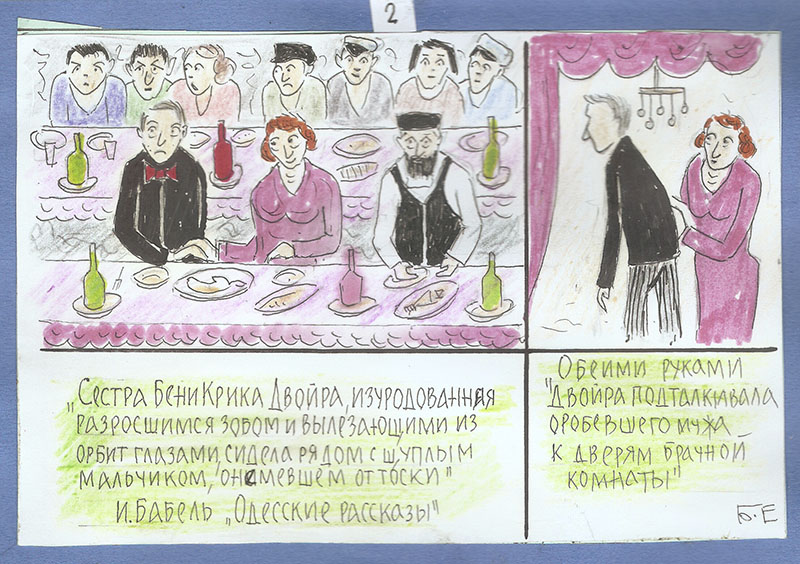 2
"Сестра Бени Крика Двойра, изуродованная
разросшимся зобом и вылезающими из
орбит глазами, сидела рядом с щуплым
мальчиком, онемевшем от тоски"
И. Бабель „Одесские рассказы"
Обеими руками
"Двойра подталкивала
оробевшего мужа
к дверям брачной
комнаты"
Б.Е